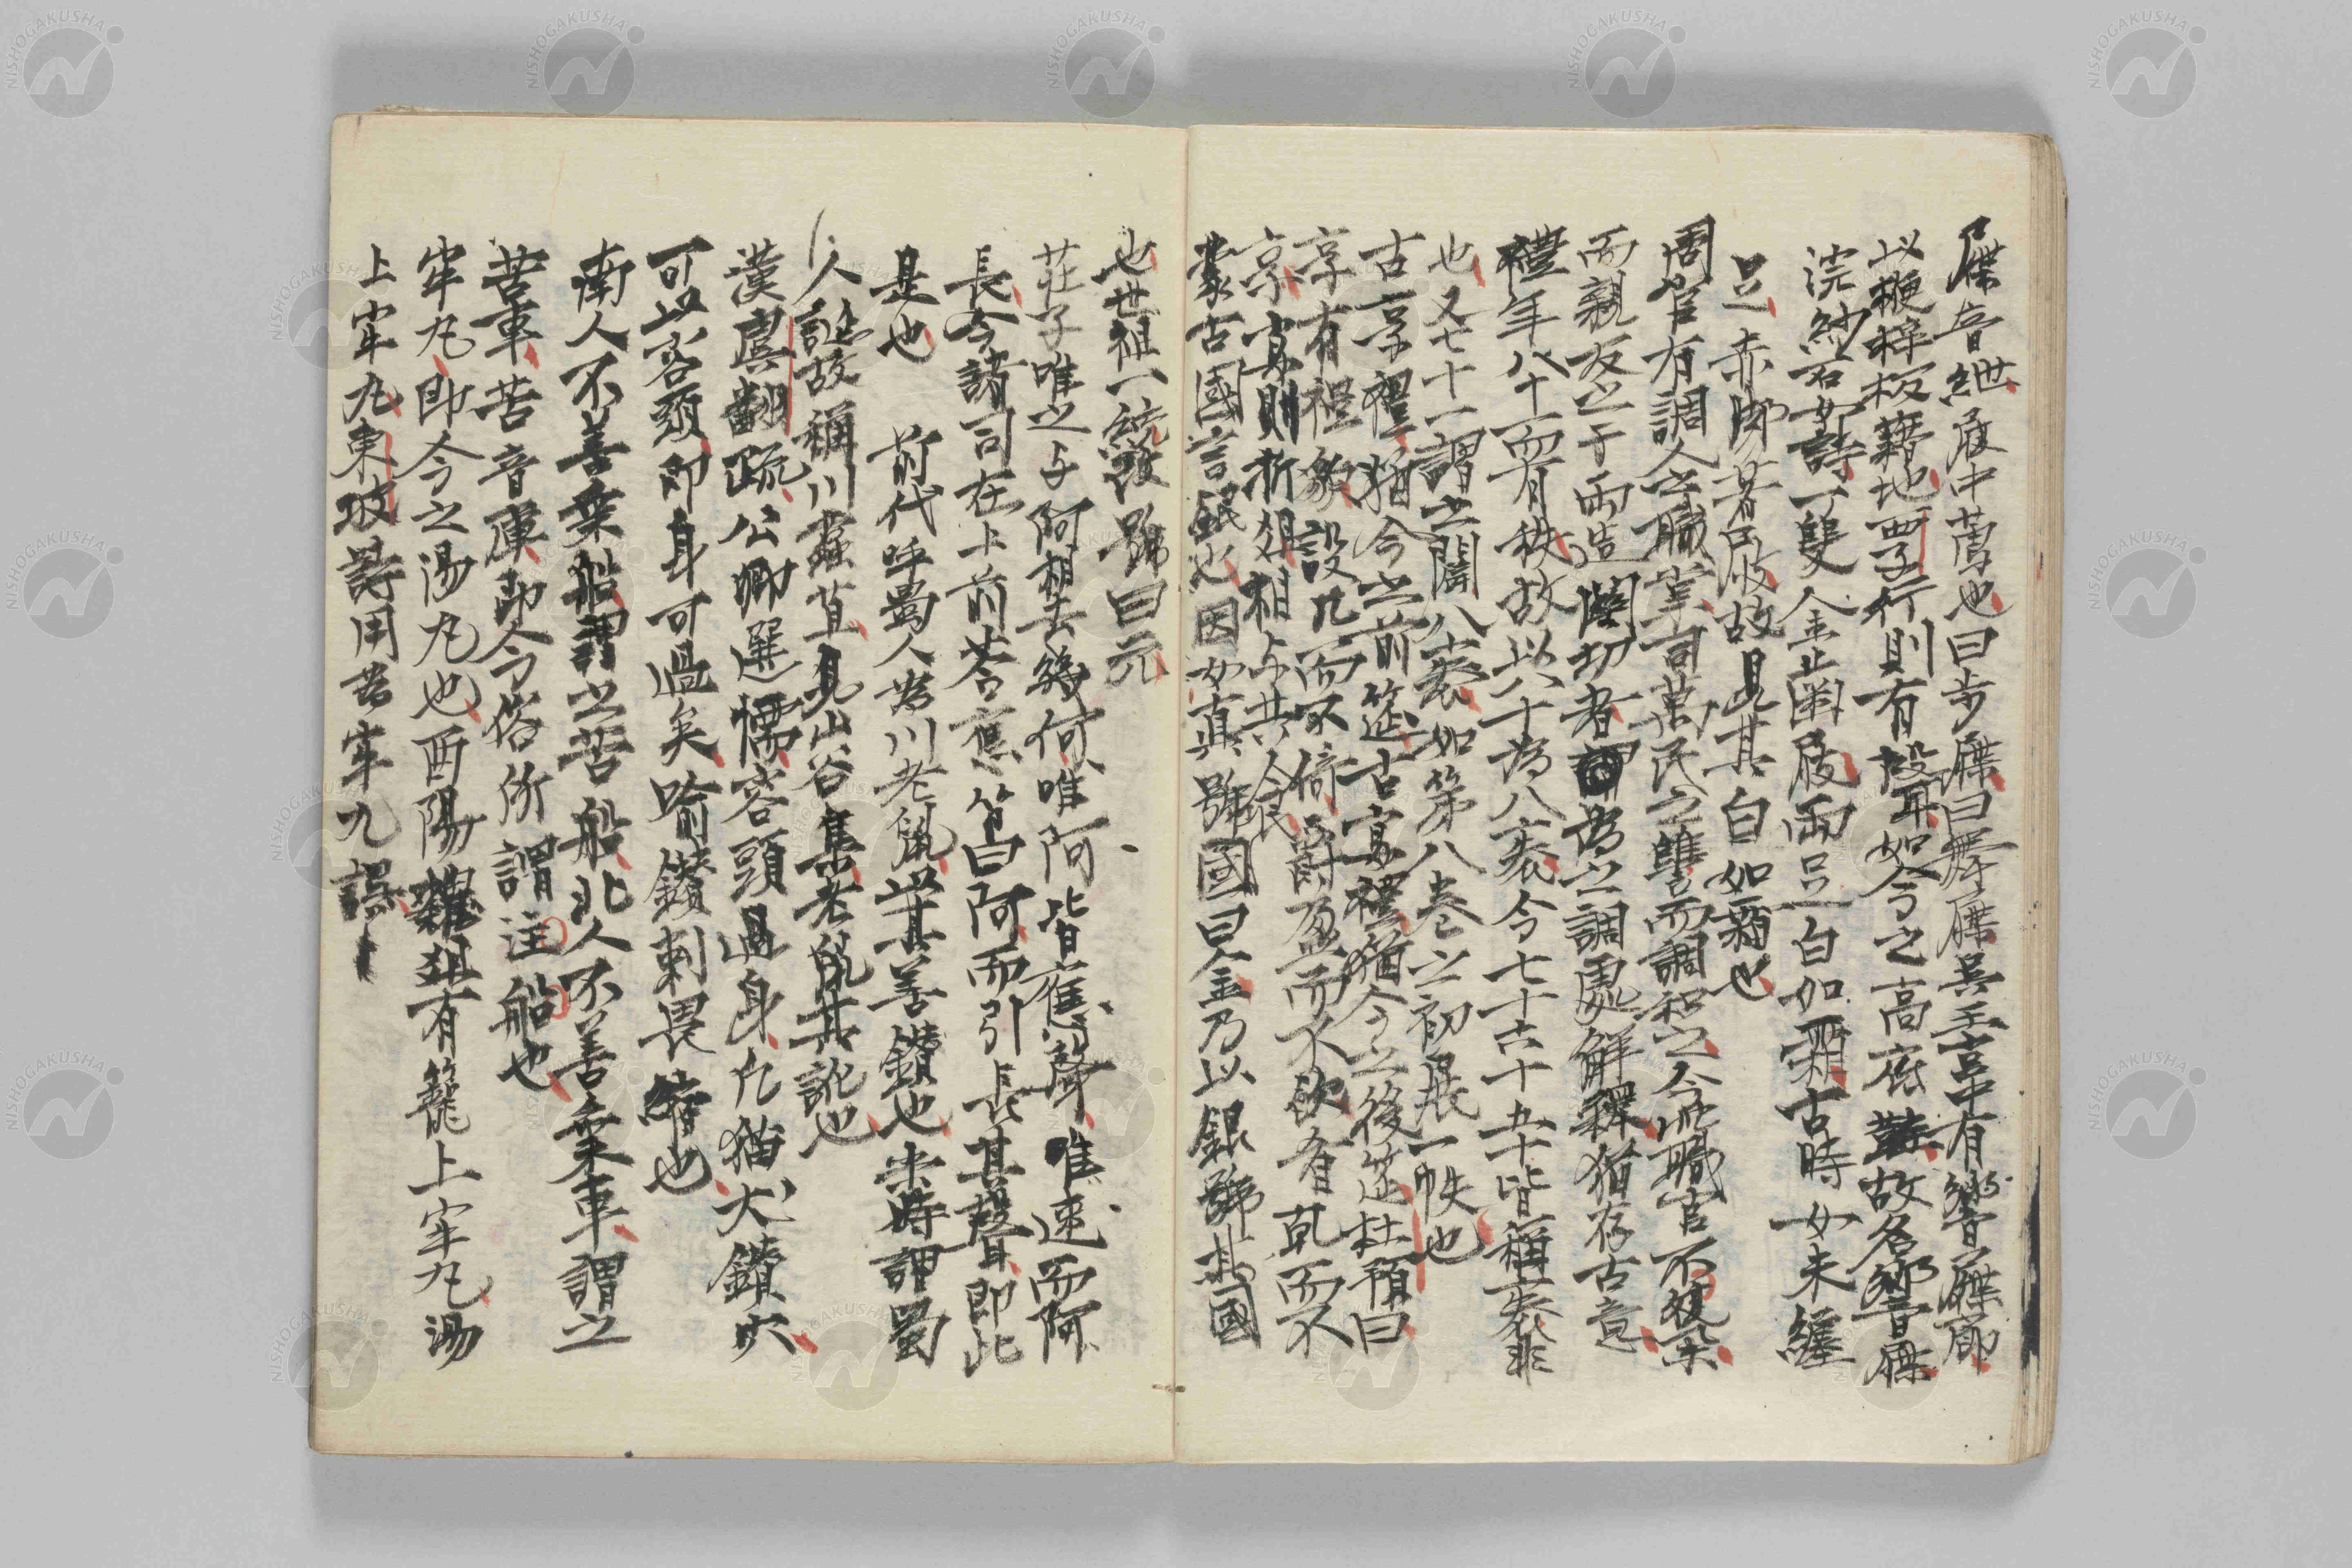 屧音紲屐中薦也曰步屧曰躧屧吳王宮中有響屧廊
以梗梓板藉地西子行則有聲耳如今之高底鞋故名響屧
浣紗石女詩一雙金齒屐兩足白如霜古時女未纏
足赤脚著屐故見其白如霜也
周官有調人之職掌司萬民之讐而調和之今此職官不復置
而親友之于兩造關切者為之調處解釋猶存古意
禮年八十一而有秩故以八十為八袠今七十六十五十皆稱袠非
也又七十一謂之開八袠如第八卷之初展一帙也
古享禮猶今之前筵古宴禮猶今之後筵杜預曰
享有禮象設几而不倚爵盈而不飲肴乾而不
享宴則折俎相与共食
蒙古國言銀也因女真號國曰金乃以銀號其國
也世祖一統改號曰元
莊子唯之与阿相去幾何唯阿皆應聲唯速而阿
長今諸司在上前荅應皆曰阿而引長其聲即此
是也 前代呼蜀人為川老鼠譏其善鑽也宋時謂蜀
人誕故稱川藞苴見山谷集老鼠其訛也
漢虞翻疏公卿選懦容頭過身凡猫犬鑽穴
可以容頭即身可過矣喻鑽刺畏縮也
南人不善乗船謂之苦船北人不善乗車謂之
苦車苦音庫即今俗所謂注船也
牢丸即今之湯丸也酉陽雜俎有籠上牢丸湯
上牢丸東坡詩用若牢九誤